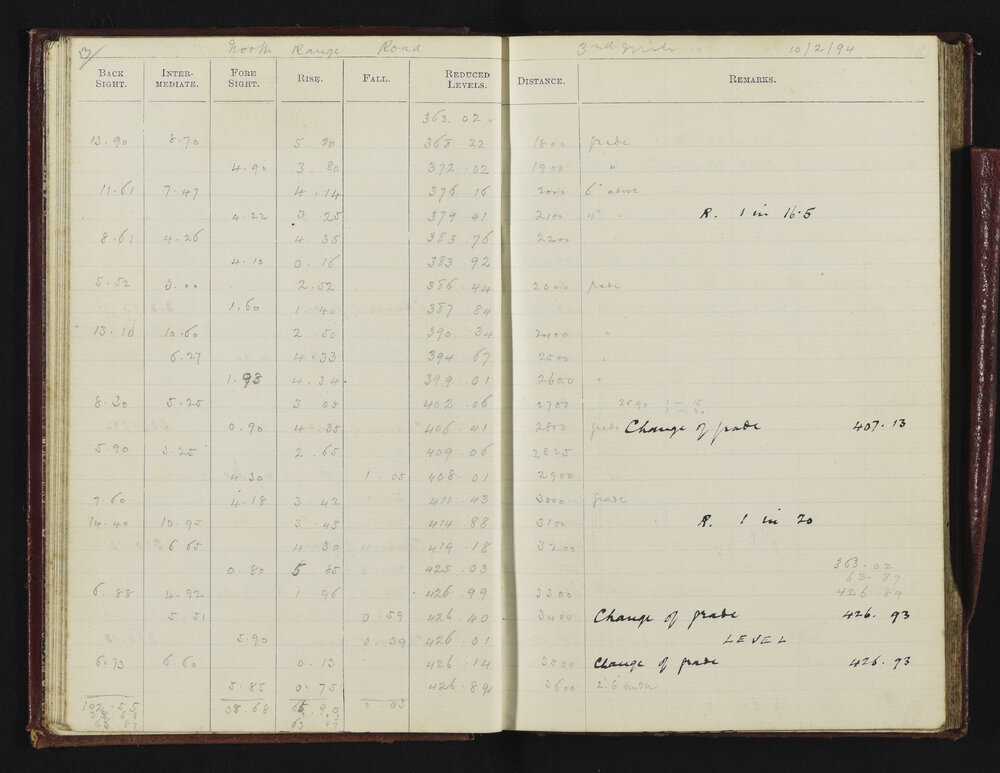 13 North Range Road 3rd Mile 10/2/94
BACK SIGHT. INTER-MEDIATE. FORE SIGHT. RISE. FALL. REDUCED LEVELS. DISTANCE. REMARKS.
363.02
13.90 8.70 5.20 368.22 1800 grade
4.90 3.80 372.02 1900 "
11.61 7.47 4.14 376.16 2000 6" above
4.22 3.25 379.41 2100 4" " R. 1 in 16.5
8.61 4.26 4.35 383.76 2200
4.10 0.16 383.92
5.52 3.00 2.52 386.44 2300 grade
1.60 1.40 387.84
13.10 10.60 2.50 390.34 2400 "
6.27 4.33 394.67 2500 "
1.93 4.34 399.01 2600 "
8.30 5.25 3.05 402.06 2700 2590 1 in 15
1 in 20
0.90 4.35 406.41 2800 grade Change of grade 407.13
5.90 3.25 2.65 409.06 2825
4.30 1.05 408.01 2900
7.60 4.18 3.42 411.43 3000 grade
14.40 10.95 3.45 414.88 3100 R. 1 in 20
6.65 4.30 419.18 3200
0.80 5.85 425.03 363.02
63.87
6.88 4.92 1.96 426.99 3300 426.89
5.51 0.59 426.40 3400 Change of grade 426.93
5.90 0.39 426.01 LEVEL
6.73 6.60 0.13 426.14 3500 Change of grade 426.93
5.85 0.75 426.89 3600 2.6 under
102.55 38.68 65.90 2.03
38.68
63.87 63.87